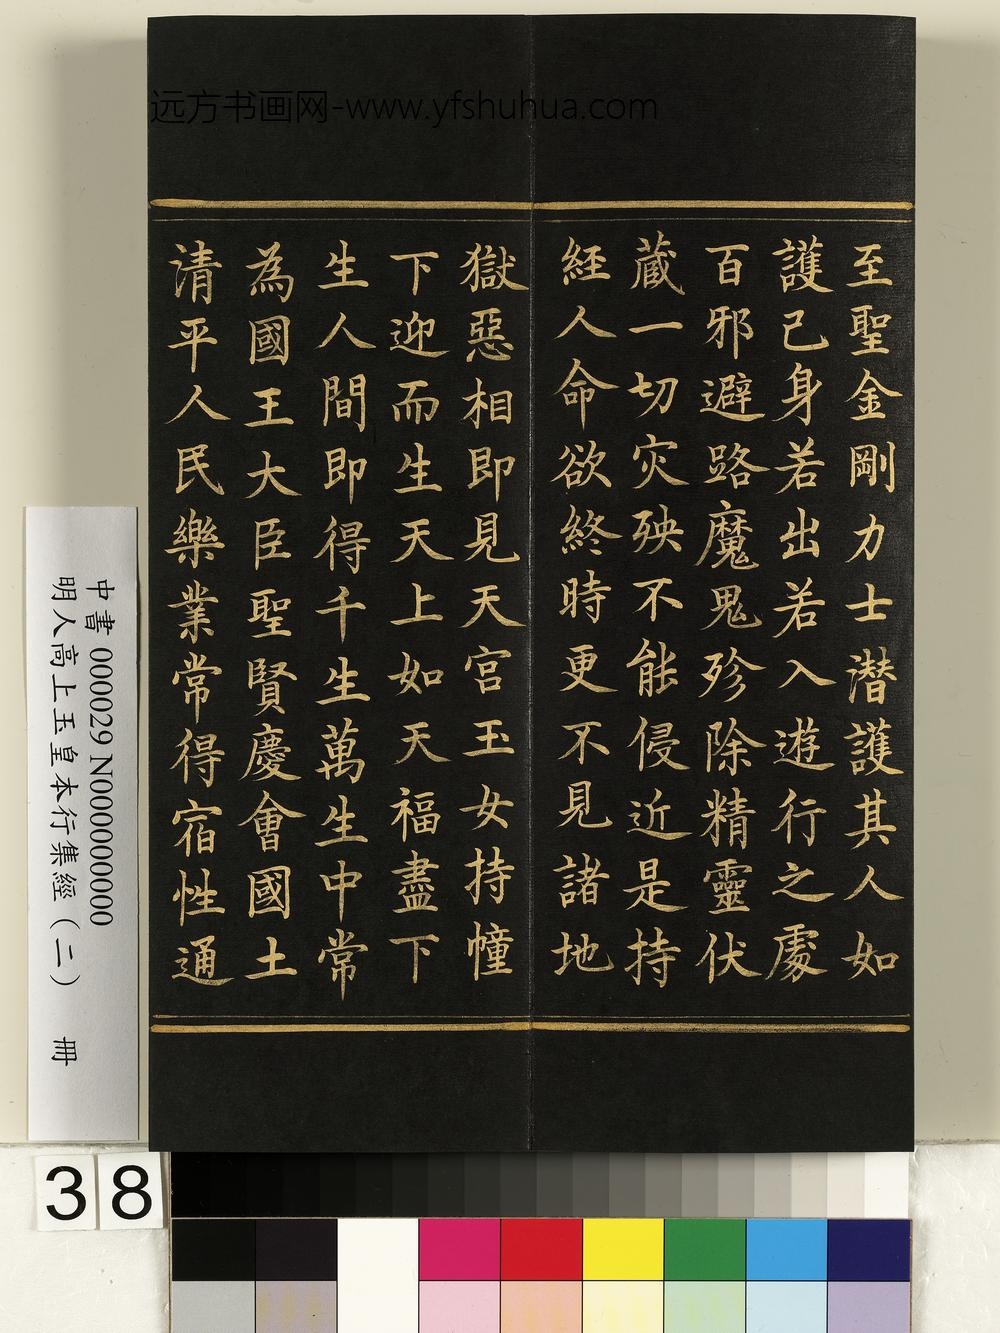 远方书画网-www.yfshuhua.com
至聖金剛力士潛護其人如
護己身若出若入遊行之處
百邪避路魔鬼殄除精靈伏
藏一切灾殃不能侵近是持
經人命欲終時更不見諸地
獄惡相即見天宫玉女持幢
下迎而生天上如天福盡下
生人間即得千生萬生中常
為國王大臣聖賢慶會國土
清平人民樂業常得宿性通
中書 000029 N000000000
明人高上玉皇本行集經（二） 冊
38